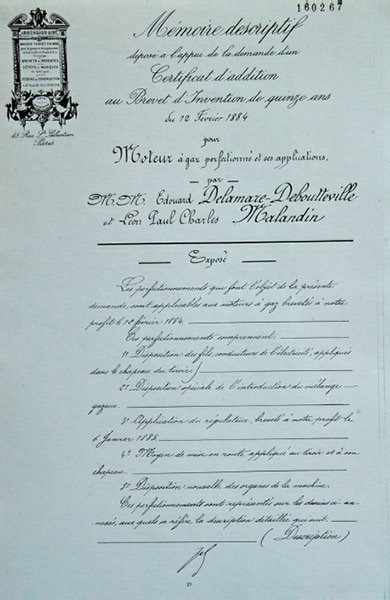 160267
ARMENGAUD AINÉ
45 Rue St Sébastien
Paris
Mémoire descriptif
déposé à l'appui de la demande d'un
Certificat d'addition
au Brevet d'Invention de quinze ans
du 12 Février 1884
pour
Moteur à gaz perfectionné et ses applications,
par
M.M. Edouard Delamare-Deboutteville
et Léon Paul Charles Malandin
Exposé
Les perfectionnements qui font l'objet de la présente
demande, sont applicables aux moteurs à gaz brevetés à notre
profit le 12 février 1884.
Ces perfectionnements comprennent:
1º Disposition des fils, conducteurs de l'électricité, appliqués
dans le chapeau du tiroir;
2º Disposition spéciale de l'introduction du mélange
gazeux.
3º Application du régulateur breveté à notre profit le
6 Janvier 1885.
4º Moyen de mise en route appliqué au tiroir et à son
chapeau.
5º Disposition nouvelle des organes de la machine.
Ces perfectionnements sont représentés sur les dessins ci-an-
nexés, aux quels se réfère la description détaillée qui suit.
(Description)